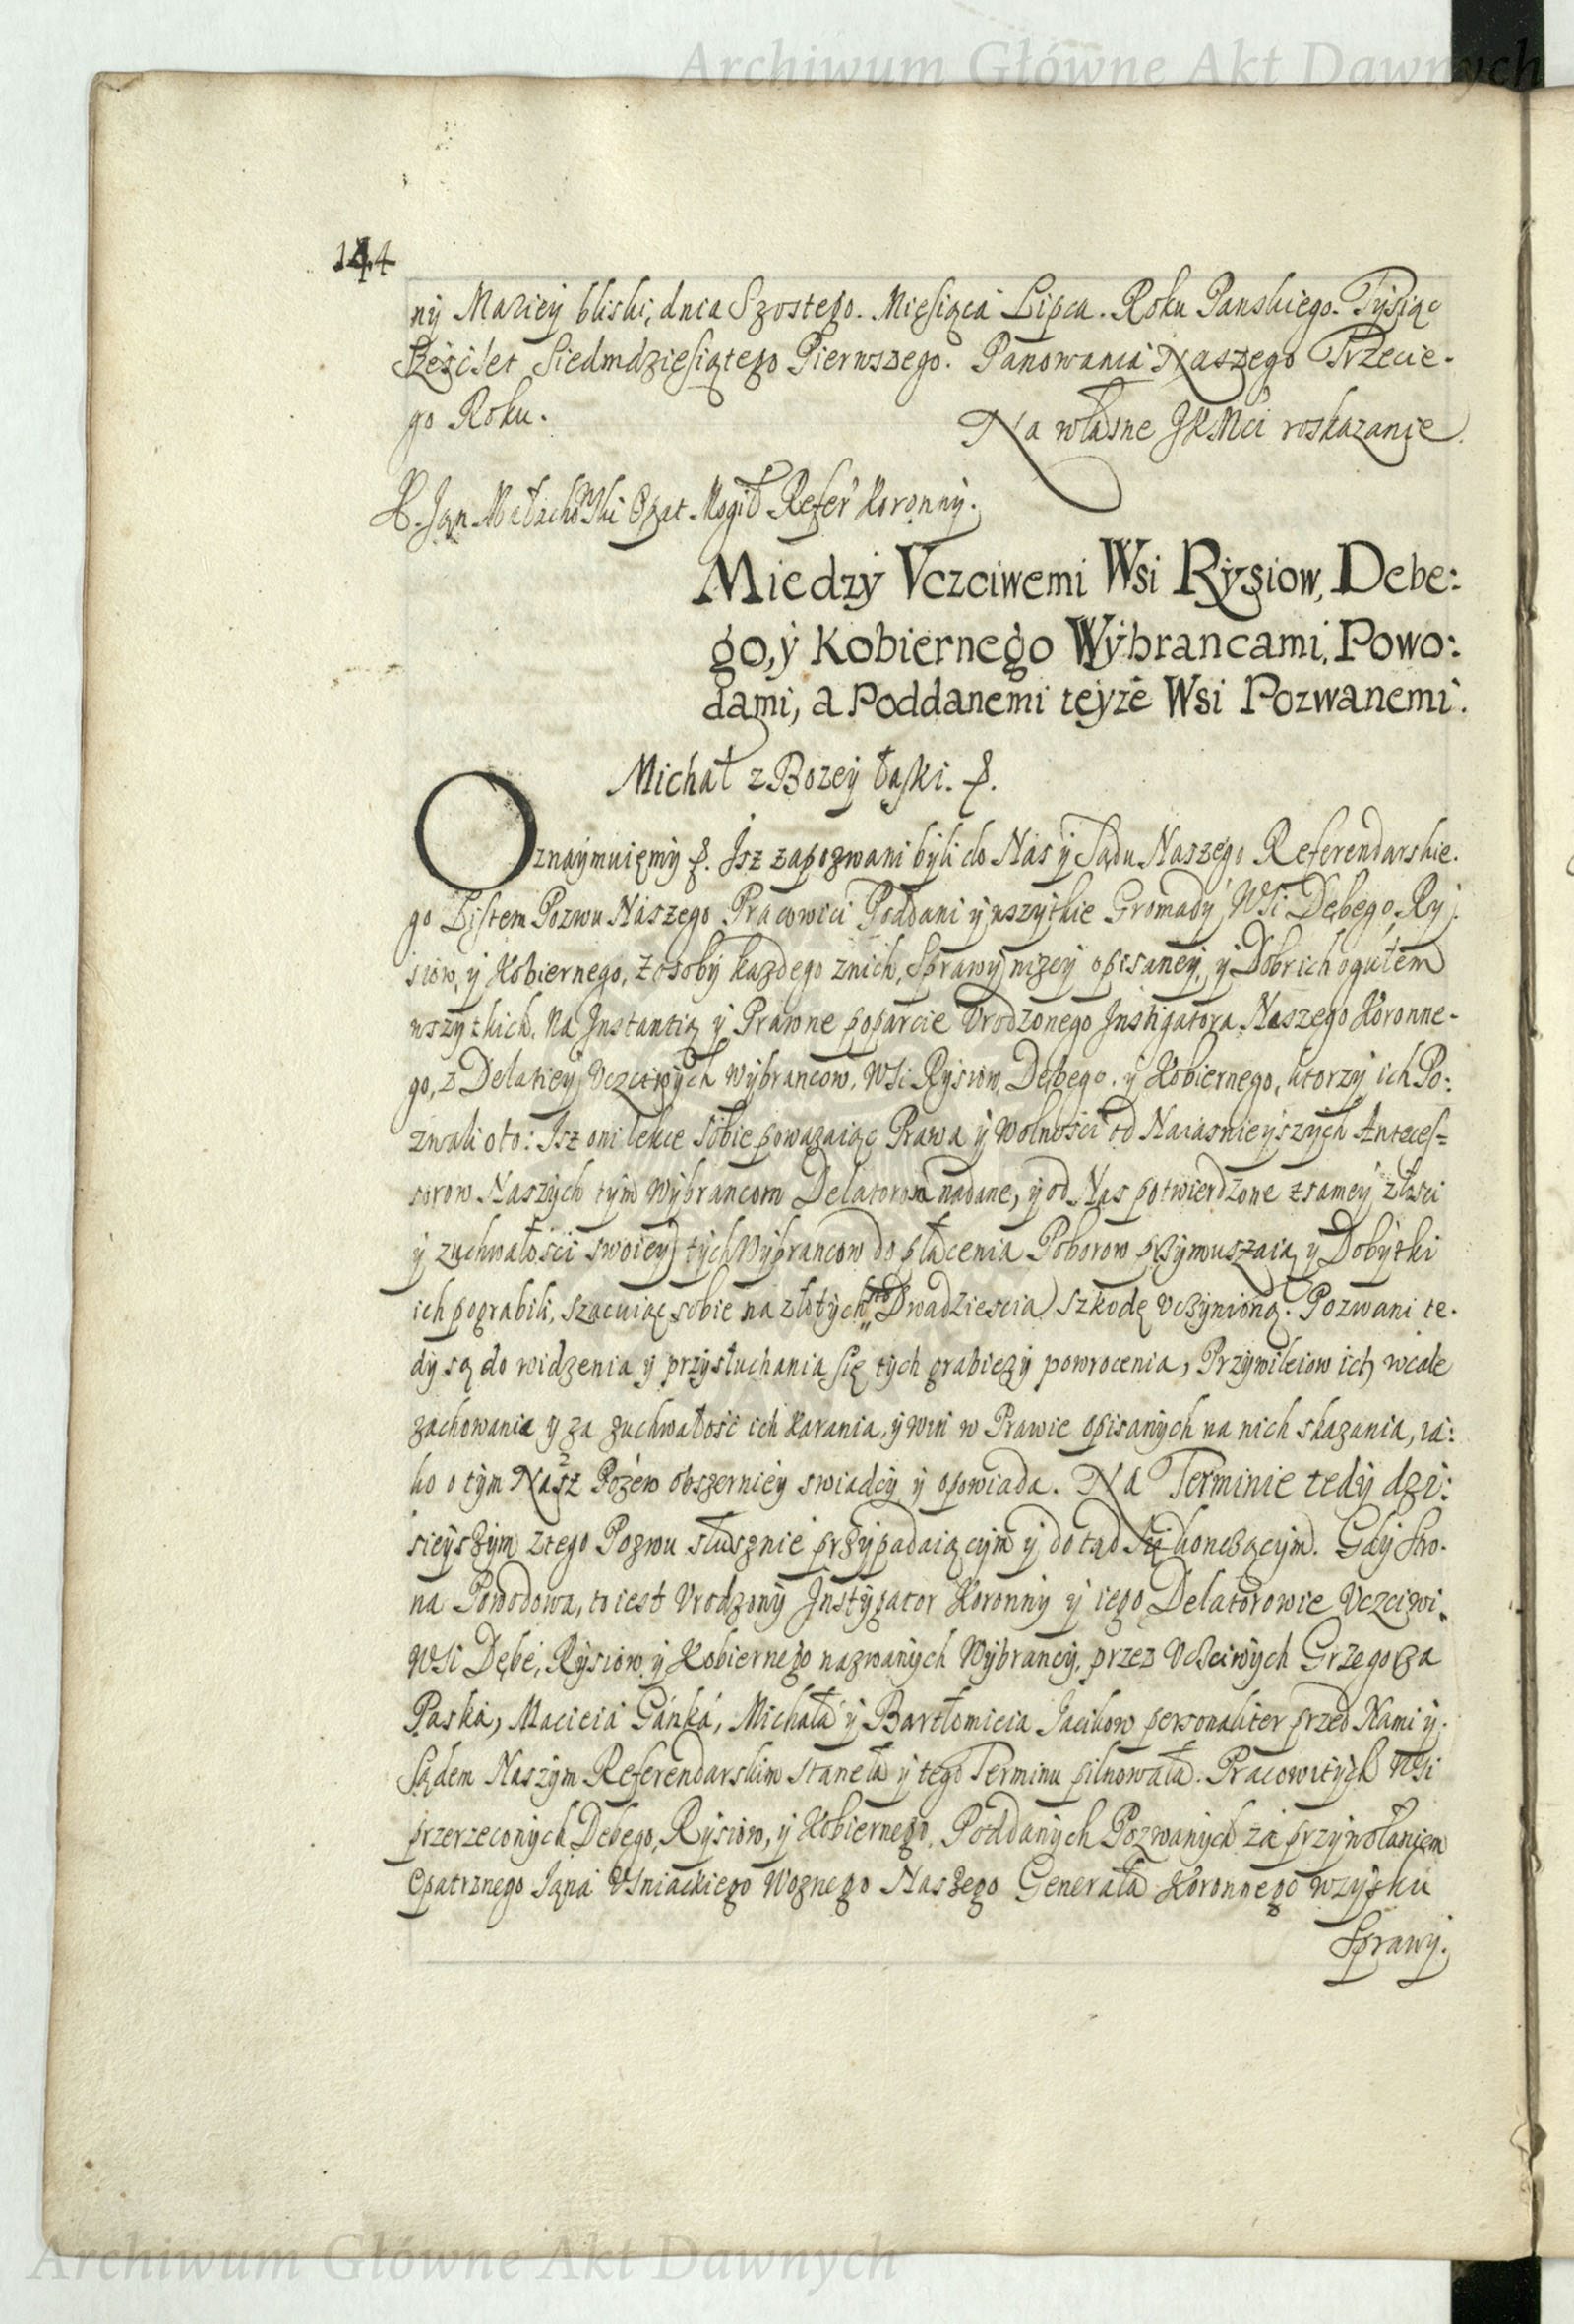 Archiwum Główne Akt Dawnych
144
ny Maciey bliski, dnia Szostego. Miesiąca Lipca. Roku Panskiego. Tysiąc
Sześćset Siedmdziesiątego Pierwszego. Panowania Naszego Trzecie-
go Roku.
Na własne JKMći roskazanie.
X. Jan Małachowski Opat Mogił Refer Koronny.
Miedzy Vczciwemi Wsi Rysiow, Debe:
go, y Kobiernego Wybrancami, Powo:
dami, a Poddanemi teyże Wsi Pozwanemi.
Michał z Bozey łaski. &.
Oznaymuięmy &. Jsz zapozwani byli do Nas y Sądu Naszego Referendarskie.
go Listem Pozwu Naszego Pracowici Poddani y wszytkie Gromady Wsi Dębego, Ry
siow, y Kobiernego, z osoby kazdego znich, Sprawy nizey opisaney, y Dobr ich ogułem
wszytkich. Na Jnstantią y Prawne poparcie Vrodzonego Jnstigatora Naszego Koronne-
go, z Delatiey Vczciwych Wybrancow, Wsi Rysiow, Dębego. y Kobiernego, ktorzy ich Po:
zwali oto: Jsz oni lekce sobie powazaiąc Prawa y Wolności od Naiasnieyszych Anteces=
sorow Naszych tym Wybrancom Delatorom nadane, y od Nas potwierdzone z samey złosci
y zuchwałości swoiey tych Wybrancow do płacenia Poborow przymuszaią, y Dobytki
ich pograbili, szacuiąc sobie na złotych sto Dwadziescia szkodę vczynioną. Pozwani te-
dy są do widzenia y przysłuchania się tych grabiezy powrocenia, Przywileiow ich wcale
zachowania y za zuchwałość ich karania, y win w Prawie opisanych na nich skazania, ia:
ko o tym Nasz Pozew obszerniey swiadcy y opowiada. Na Terminie tedy dzi:
sieyszym z tego Pozwu słusznie przypadaiącym y do tąd się konczącym. Gdy Stro-
na Powodowa, to iest Vrodzony Jnstygator Koronny y iego Delatorowie Vczciwi
Wsi Dębe, Rysiow y Kobiernego nazwanych Wybrancy, przez Vcciwych Grzegorza
Paska, Macieia Gáńká, Michała y Bartłomieia Jacikow personaliter przed Nami y.
Sądem Naszym Referendarskim stanęła y tego Terminu pilnowała. Pracowitych Wsi
przerzeconych Debego, Rysiow, y Kobiernego, Poddanych Pozwanych za przywołaniem
Opatrznego Jana Vsniackiego Woznego Naszego Generała Koronnego wzysku
Sprawy.
Archiwum Główne Akt Dawnych